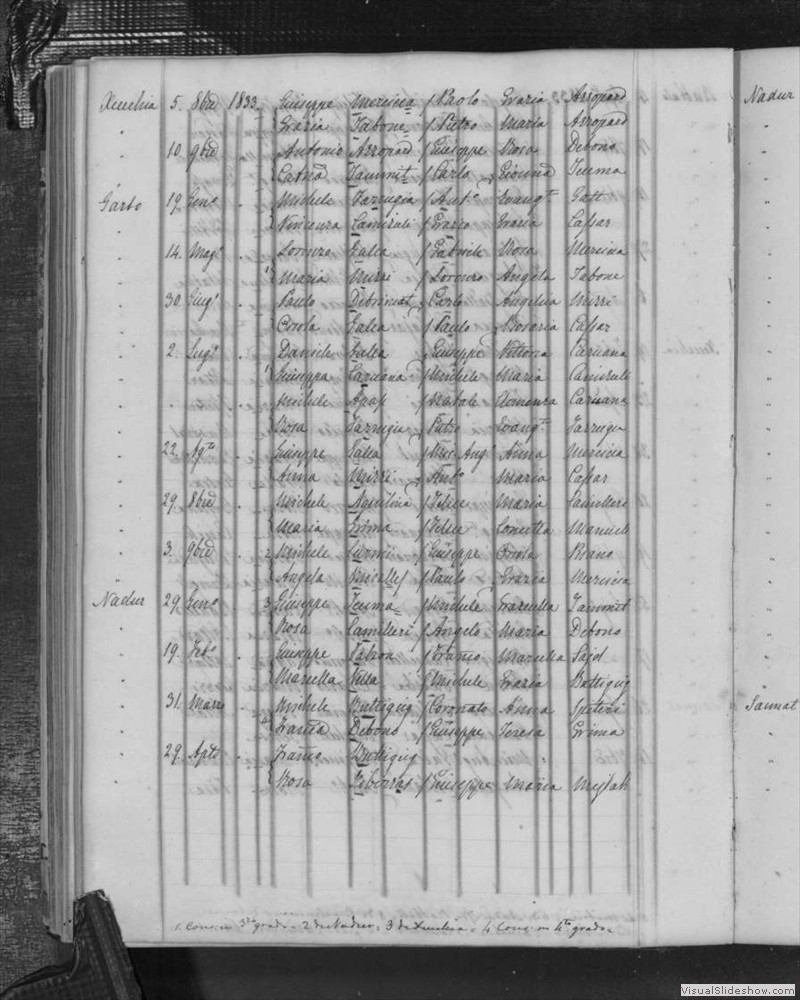 Xeuchia 5. 8bre 1833. Giuseppe Mercieca / Paolo Grazia Arropard
Grazia Tabone / Pietro Maria Arropard
10. 9bre Antonio Arropard / Giuseppe Rosa Debono
Catna Tammit / Carlo Gioanna Teuma
Garbo 19. Genº Michele Farrugia / Antº Evangta Gatt
Vincenza Camisuli / Grazio Grazia Cassar
14. Magº Lorenzo Galea / Gabriele Rosa Mercieca
Maria Mizzi / Lorenzo Angela Tabone
30. Giugº Paulo Debrincat / Carlo Angelica Mizzi
Orsola Galea / Paulo Rosaria Cassar
2. Lugº Daniele Galea / Giuseppe Vittoria Caruana
1 Giuseppa Caruana / Michele Maria Camisuli
Michele Apap / Natale Domenica Caruana
Rosa Farrugia / Pietro Evangta Farrugia
22. Agto Giuseppe Galea / Angº Anna Mercieca
Anna Mizzi / Antº Maria Cassar
29. 8bre Michele Aquilina / Felice Maria Camilleri
Maria Grima / Felice Concetta Manueli
3. 9bre 2 Michele Curmi / Giuseppe Orsola
Angela Micallef / Paulo Grazia Mercieca
Nadur 29. Genº 3 Giuseppe Teuma / Michele Graziulla Tammit
Rosa Camilleri / Angelo Maria Debono
19. Febº Giuseppe / Franco Marcella Said
Marcella Vella / Michele Grazia Buttigieg
31. Marzo Michele Buttigieg / Coronato Anna Spiteri
Franca Debono / Giuseppe Teresa Grima
29. Aple Franco Buttigieg
Rosa Ziberras / Giuseppe Maria Mejlak
1. Cons: in 3zo grado - 2 da Nadur - 3 da Xeuchia - 4 Cons: in 4to grado -
Nadur
Sannat
VisualSlideshow.com